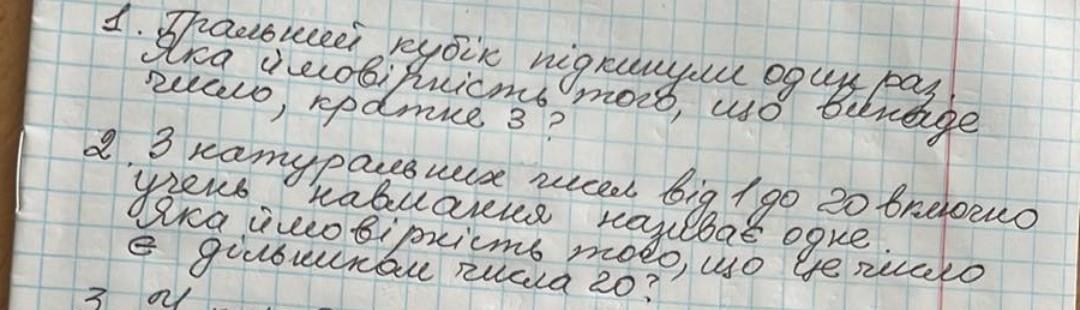 1. Гральний кубік підкинули один раз.
Яка ймовірність того, що випаде
число, кратне 3?
2. З натуральних чисел від 1 до 20 включно
учень навмання називає одне.
Яка ймовірність того, що це число
є дільником числа 20?
3.